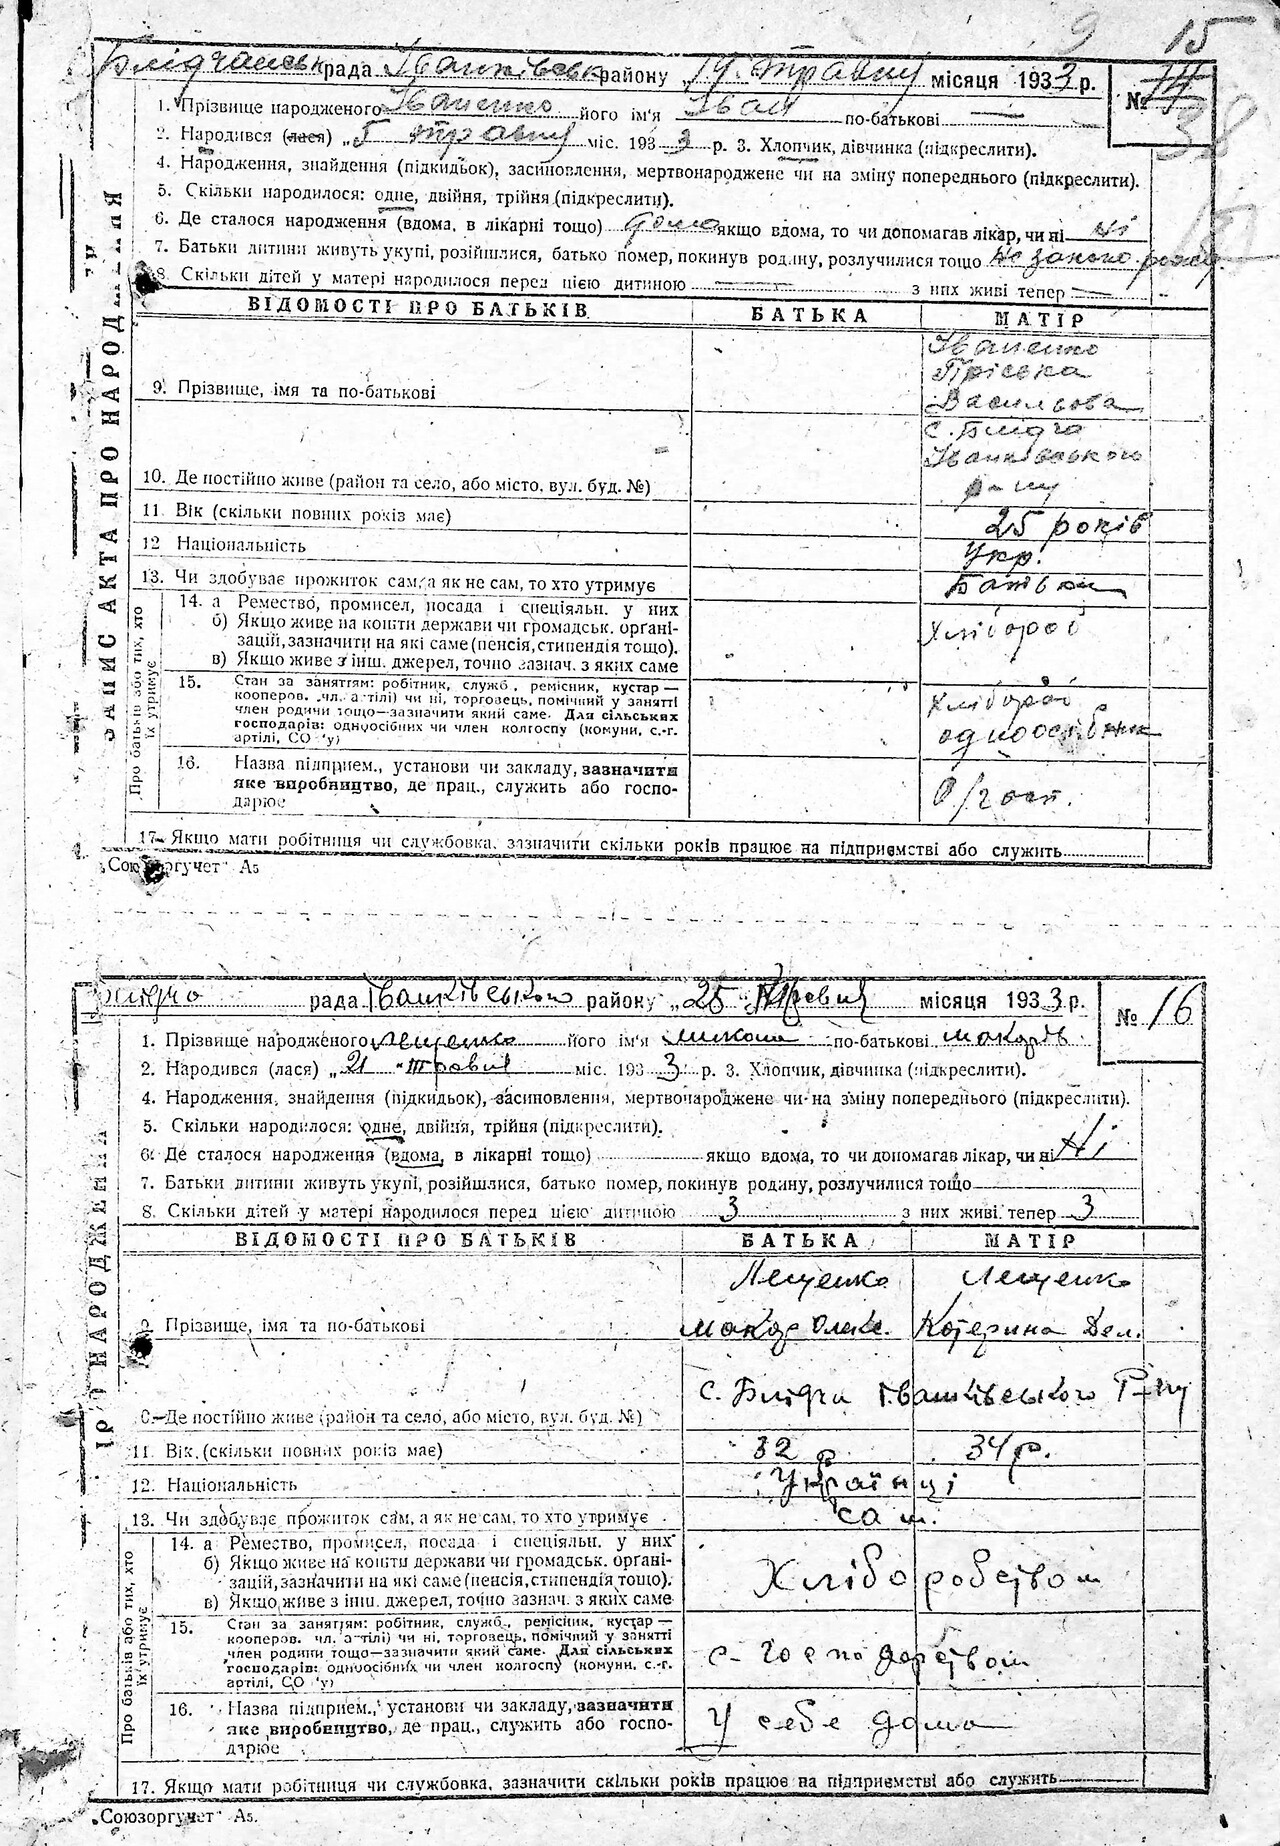 9 15
Блідчанськ рада Іванківськ району „19 травня місяця 1933 р.
№ 14
38
1. Прізвище народженого Іваненко його ім'я Іван по-батькові —
2. Народився (лася) „5 травня міс. 1933 р. 3. Хлопчик, дівчинка (підкреслити).
4. Народження, знайдення (підкидьок), засиновлення, мертвонароджене чи на зміну попереднього (підкреслити).
5. Скільки народилося: одне, двійня, трійня (підкреслити).
6. Де сталося народження (вдома, в лікарні тощо) дома якщо вдома, то чи допомагав лікар, чи ні ні
7. Батьки дитини живуть укупі, розійшлися, батько помер, покинув родину, розлучилися тощо
8. Скільки дітей у матері народилося перед цією дитиною — з них живі тепер —
ЗАПИС АКТА ПРО НАРОДЖЕННЯ
ВІДОМОСТІ ПРО БАТЬКІВ БАТЬКА МАТІР
Іваненко
Пріська
9. Прізвище, імя та по-батькові Васильова
с. Блідча
Іванківського
10. Де постійно живе (район та село, або місто, вул. буд. №) р-ну
11. Вік (скільки повних років має) 25 років
12 Національність Укр.
13. Чи здобуває прожиток сам, а як не сам, то хто утримує Батьки
Про батьків або тих, хто їх утримує
14. а Ремество, промисел, посада і спеціяльн. у них
б) Якщо живе на кошти держави чи громадськ. органі- Хлібороб
зацій, зазначити на які саме (пенсія, стипендія тощо).
в) Якщо живе з інш. джерел, точно зазнач. з яких саме
15. Стан за заняттям: робітник, служб., ремісник, кустар —
кооперов. чл. артілі) чи ні, торговець, помічний у занятті Хлібороб
член родини тощо—зазначити який саме. Для сільських
господарів: одноосібних чи член колгоспу (комуни, с.-г. одноосібник
артілі, СО у)
16. Назва підприєм., установи чи закладу, зазначити
яке виробництво, де прац., служить або госпо- О/госп.
дарює
17. Якщо мати робітниця чи службовка, зазначити скільки років працює на підприємстві або служить
„Союзоргучет" А5
Блідча рада Іванківського району „25 Травня місяця 1933 р.
№ 16
1. Прізвище народженого Лещенко його ім'я Микола по-батькові Макарів
2. Народився (лася) „21 травня міс. 1933 р. 3. Хлопчик, дівчинка (підкреслити).
4. Народження, знайдення (підкидьок), засиновлення, мертвонароджене чи на зміну попереднього (підкреслити).
5. Скільки народилося: одне, двійня, трійня (підкреслити).
6. Де сталося народження (вдома, в лікарні тощо) якщо вдома, то чи допомагав лікар, чи ні Ні
7. Батьки дитини живуть укупі, розійшлися, батько помер, покинув родину, розлучилися тощо
8. Скільки дітей у матері народилося перед цією дитиною 3 з них живі тепер 3
ПРО НАРОДЖЕННЯ
ВІДОМОСТІ ПРО БАТЬКІВ БАТЬКА МАТІР
Лещенко Лещенко
9. Прізвище, імя та по-батькові Макар Олекс. Катерина Дем.
с. Блідча Іванківського Р-ну
0. Де постійно живе (район та село, або місто, вул. буд. №)
11. Вік (скільки повних років має) 32 р 34 р.
12. Національність Українці
13. Чи здобуває прожиток сам, а як не сам, то хто утримує сам.
Про батьків або тих, хто їх утримує
14. а Ремество, промисел, посада і спеціяльн. у них
б) Якщо живе на кошти держави чи громадськ. органі- Хліборобством
зацій, зазначити на які саме (пенсія, стипендія тощо).
в) Якщо живе з інш. джерел, точно зазнач. з яких саме
15. Стан за заняттям: робітник, служб., ремісник, кустар —
кооперов. чл. артілі) чи ні, торговець, помічний у занятті
член родини тощо—зазначити який саме. Для сільських с-господарством
господарів: одноосібних чи член колгоспу (комуни, с.-г.
артілі, СО у)
16. Назва підприєм., установи чи закладу, зазначити
яке виробництво, де прац., служить або госпо- У себе дома
дарює
17. Якщо мати робітниця чи службовка, зазначити скільки років працює на підприємстві або служить
„Союзоргучет" А5.